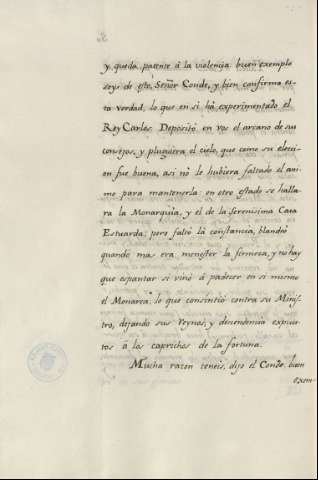 y queda patente á la violencia: buen exemplo
soys de esto, Señor Conde, y bien confirma es-
ta verdad, lo que en si há experimentado el
Rey Carlos. Depositó en vos el arcano de sus
consejos, y pluguiera el cielo, que como su elec-
ion fue buena, asi nó le hubiera faltado el ani-
mo para mantenerla: en otro estado se halla-
ra la Monarquia, y el de la serenisima Casa
Estuarda; pero faltó la constancia, blandeó
quando mas era menester la firmeza, y nó hay
que espantar si vinó á padecer en si mismo
el Monarca, lo que consintió contra su Minis-
tro, dejando sus Reynos, y descendencia expues-
tos á los caprichos de la fortuna.
Mucha razon teneis, dijo el Conde, bien
exem-